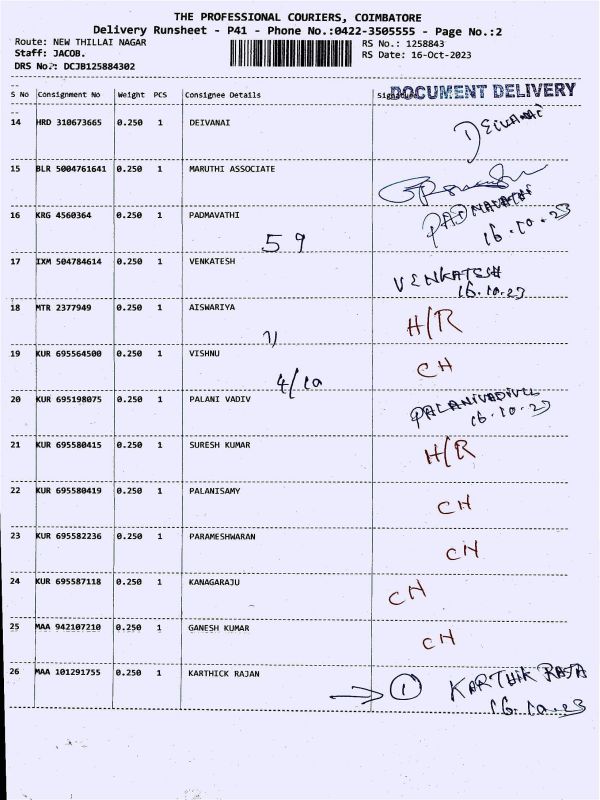 THE PROFESSIONAL COURIERS, COIMBATORE
Delivery Runsheet - P41 - Phone No.:0422-3505555 - Page No.:2
Route: NEW THILLAI NAGAR RS No.: 1258843
Staff: JACOB. RS Date: 16-Oct-2023
DRS No.: DCJB125884302
DOCUMENT DELIVERY
S No Consignment No Weight PCS Consignee Details Signature
14 HRD 310673665 0.250 1 DEIVANAI DEIVANAI
15 BLR 5004761641 0.250 1 MARUTHI ASSOCIATE
16 KRG 4560364 0.250 1 PADMAVATHI PADMAVATHI
59 16.10.23
17 IXM 504784614 0.250 1 VENKATESH VENKATESH
16.10.23
18 MTR 2377949 0.250 1 AISWARIYA H/R
19 KUR 695564500 0.250 1 VISHNU CH
4/10
20 KUR 695198075 0.250 1 PALANI VADIV PALANIVADIVEL
16.10.23
21 KUR 695580415 0.250 1 SURESH KUMAR H/R
22 KUR 695580419 0.250 1 PALANISAMY CH
23 KUR 695582236 0.250 1 PARAMESHWARAN CH
24 KUR 695587118 0.250 1 KANAGARAJU CH
25 MAA 942107210 0.250 1 GANESH KUMAR CH
26 MAA 101291755 0.250 1 KARTHICK RAJAN 1 KARTHIK RAJA
16.10.23